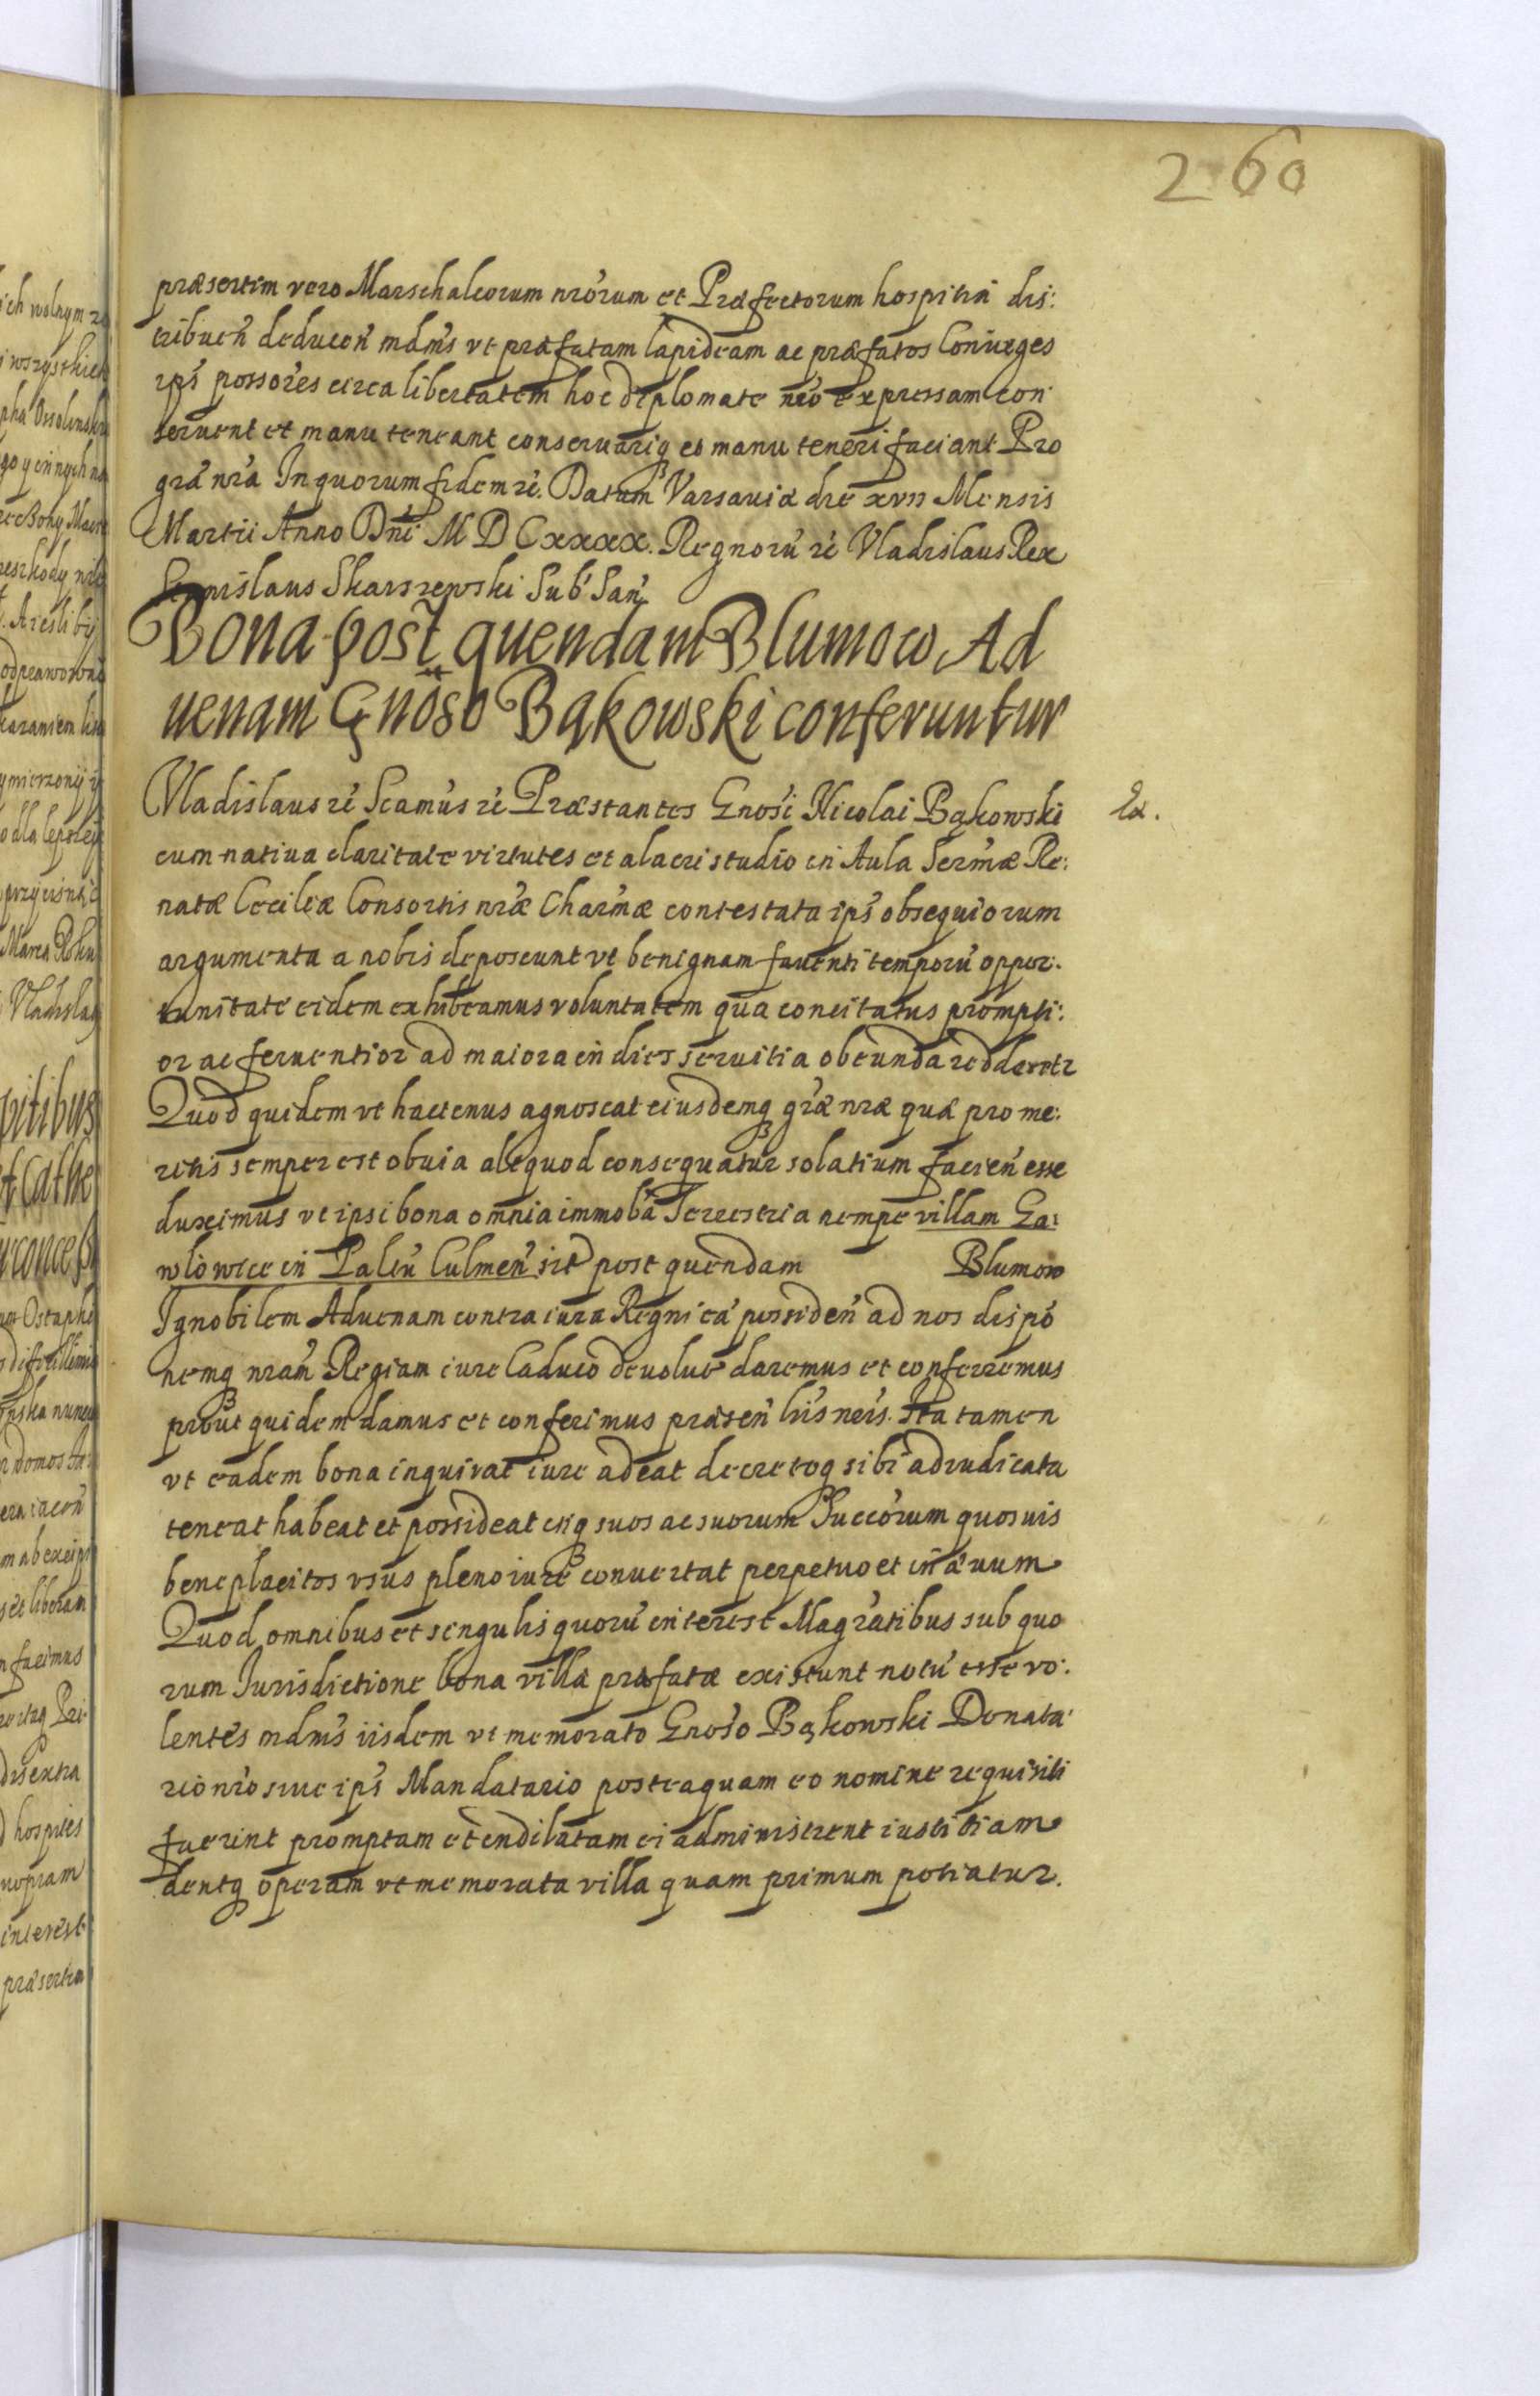 260
præsertim vero Marschalcorum nrórum et Præfectorum hospitia dis:
tribueń deducen̄ mdm̄s vt præfatam lapideam ac præfatos Coniuges
ips̄ possōres circa libertatem hoc diplomate nr̄o expressam con
seruent et manu teneant conseruariq et manu teneri faciant Pro
grā nrā In quorum fidem rē. Datum Varsauiæ die xvii Mensis
Martii Anno Dn̄i M D C xxxx. Regnorū rē Vladislaus Rex
Stanislaus Skarszewski Sub San
Bona post quendam Blumow Ad
uenam Gnōso Bąkowski conferuntur
Vladislaus rē Scamūs rē Præstantes Gnōsi Nicolai Bąkowski
Ex.
cum natiua claritate virtutes et alacri studio in Aula Sermæ Re:
natæ Ceciliæ Consortis nræ Charmæ contestata ips̄ obsequiorum
argumenta a nobis deposcunt vt benignam fauenti temporū oppor:
tunitate eidem exhibeamus voluntatem qua concitatus prompti:
or ac feruentior ad maiora in dies seruitia obeunda redderetr
Quod quidem vt hactenus agnoscat eiusdemq græ nræ quæ pro me:
ritis semper est obuia aliquod consequatur solatium facień esse
duximus vt ipsi bona omnia immobā Terrestria nempe villam Ga:
wlowice in Palēn Culmeń sit post quendam Blumow
Ignobilem Aduenam contra iura Regni eā possideń ad nos dispō
nemq nram̄ Regiam iure Caduco devolut daremus et conferremus
prout quidem damus et conferimus præseń lris nr̄is. Ita tamen
vt eadem bona inquirat iure adeat decretoq sibi adiudicata
teneat habeat et possideat inq suos ac suorum Succōrum quosuis
beneplacitos vsus pleno iure conuertat perpetuo et in æuum
Quod omnibus et singulis quorū interest Magrātibus sub quo
rum Iurisdictione bona villæ præfatæ existunt notū esse vo:
lentes mdm̄s iisdem vt memorato Gnōso Bąkowski Donata
rio nr̄o siue ips̄ Mandatario posteaquam eo nomine requisiti
fuerint promptam et indilatam ei administrent iustitiam
dentq operam vt memorata villa quam primum potiatur.